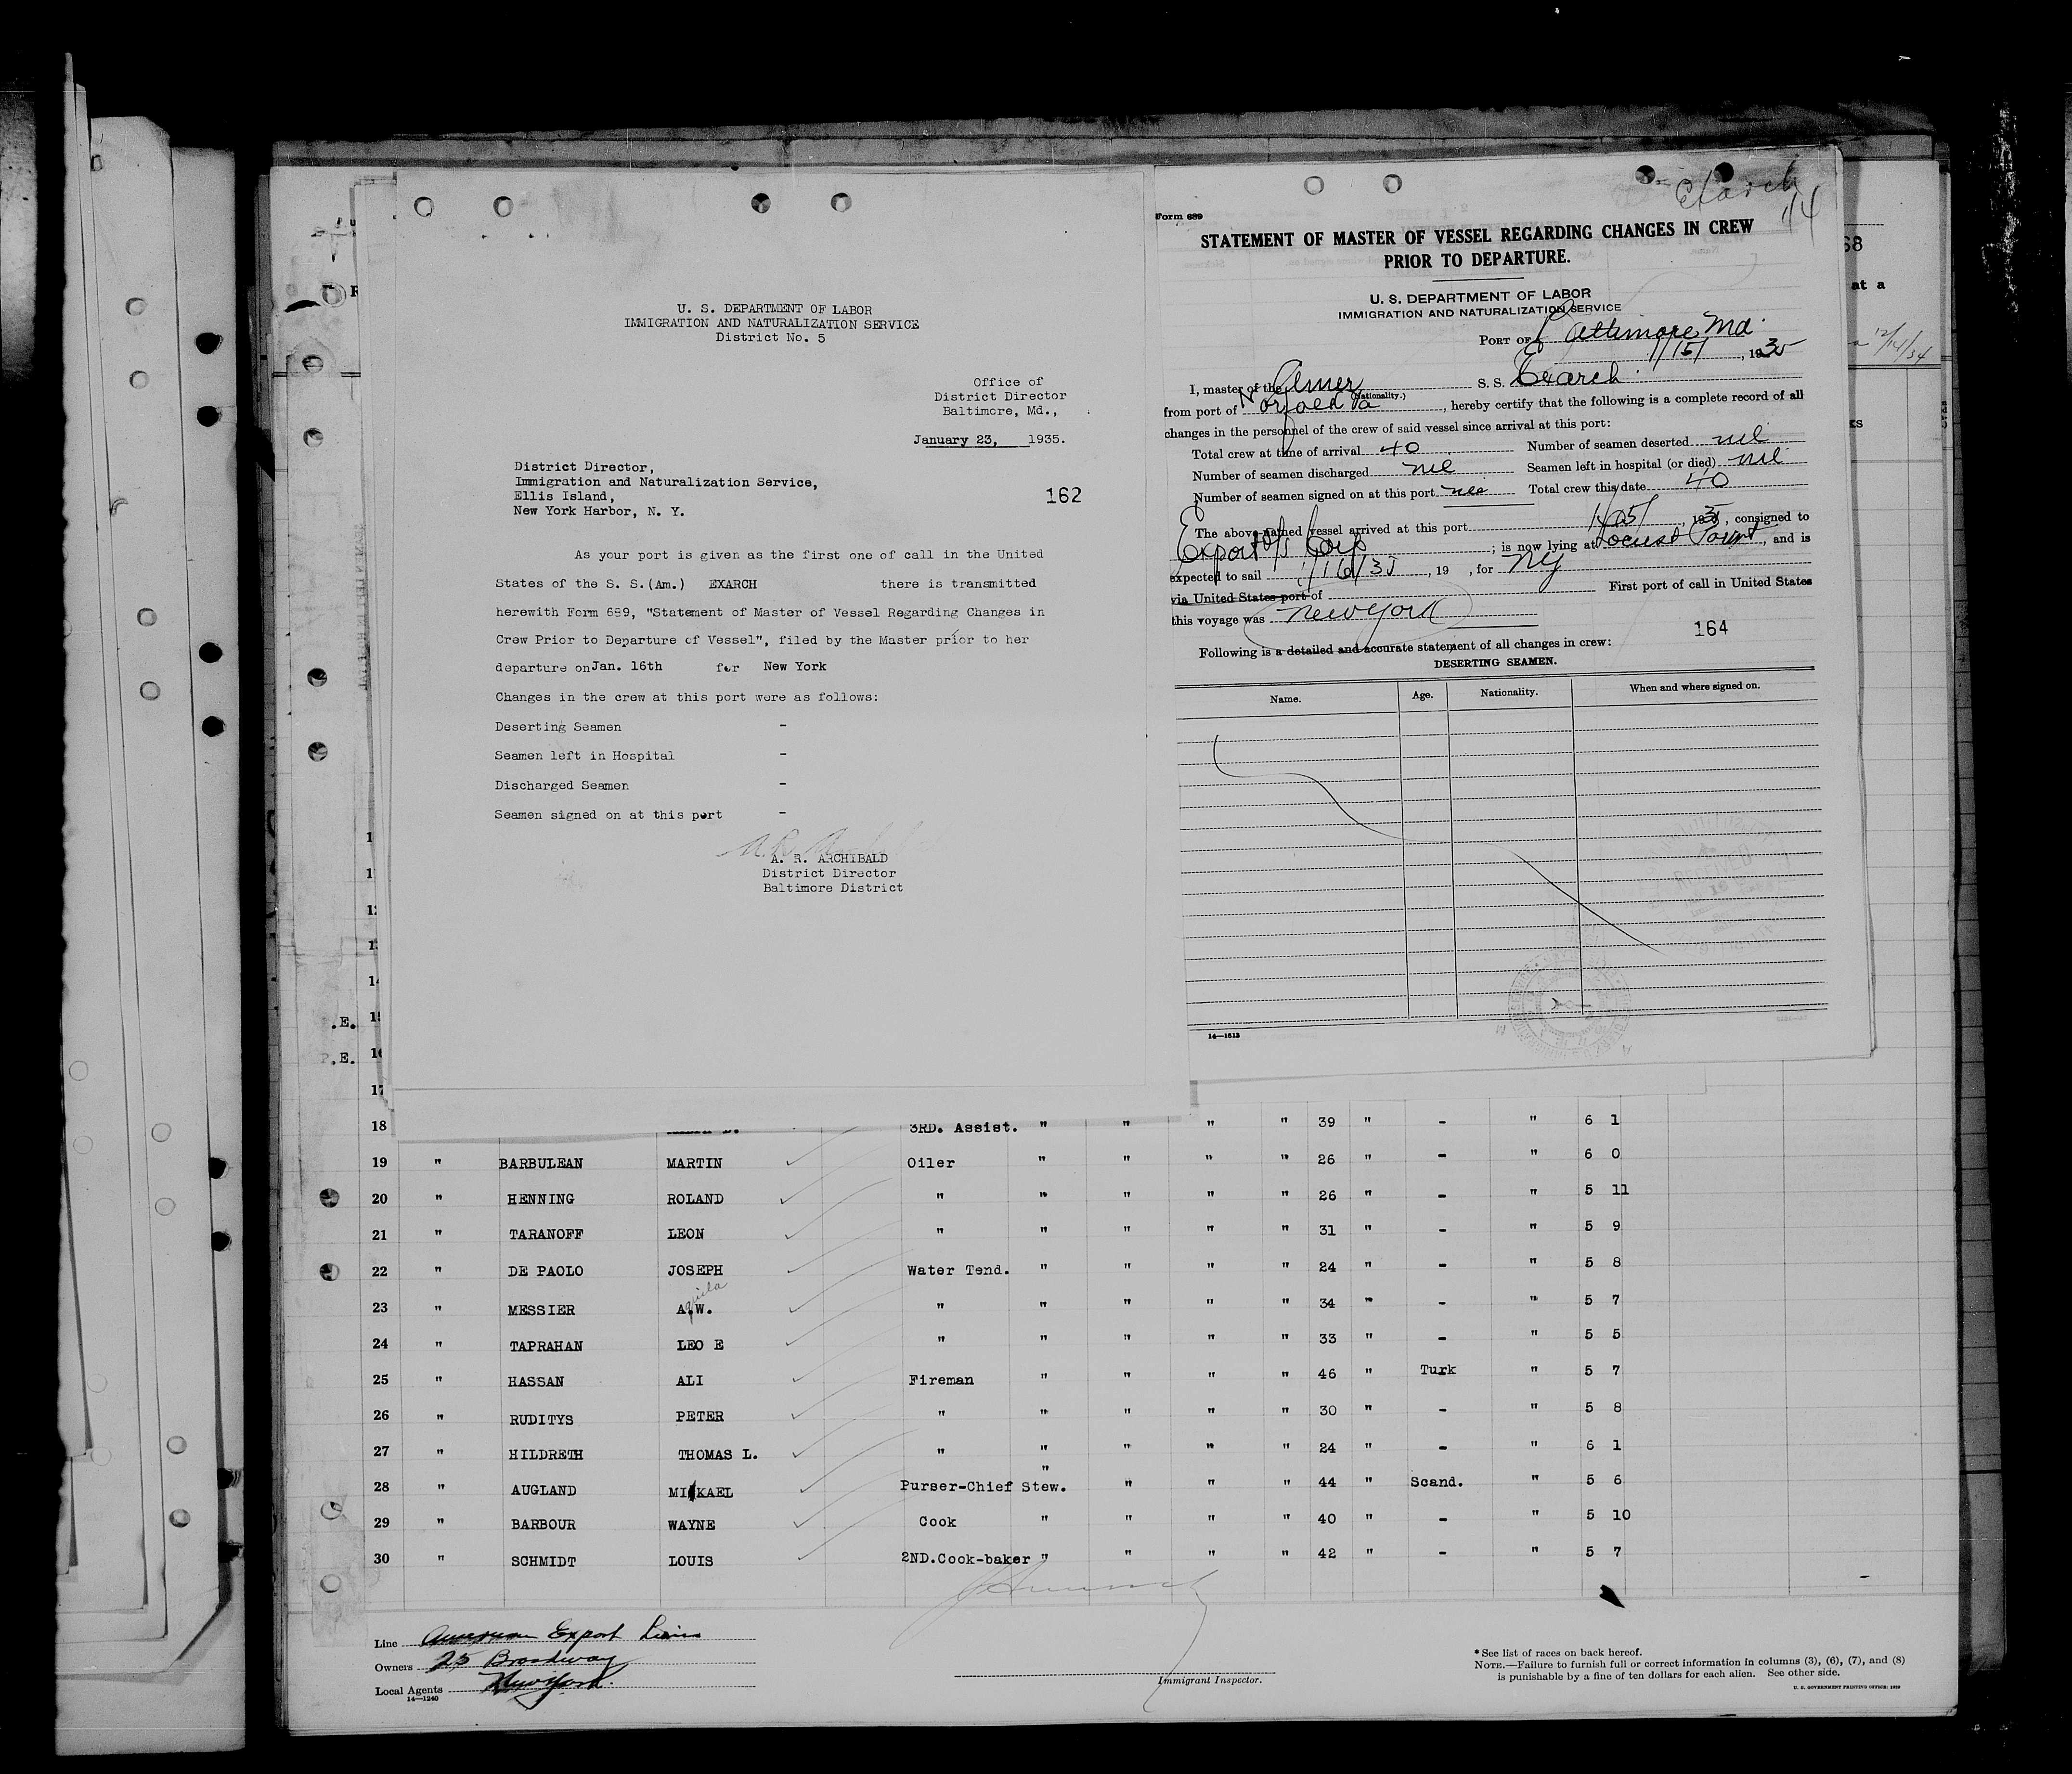 U. S. DEPARTMENT OF LABOR
IMMIGRATION AND NATURALIZATION SERVICE
District No. 5
Office of
District Director
Baltimore, Md.,
January 23, 1935.
District Director,
Immigration and Naturalization Service,
Ellis Island,
New York Harbor, N. Y.
162
As your port is given as the first one of call in the United
States of the S. S.(Am.) EXARCH there is transmitted
herewith Form 689, "Statement of Master of Vessel Regarding Changes in
Crew Prior to Departure of Vessel", filed by the Master prior to her
departure on Jan. 16th for New York
Changes in the crew at this port were as follows:
Deserting Seamen -
Seamen left in Hospital -
Discharged Seamen -
Seamen signed on at this port -
A. R. ARCHIBALD
District Director
Baltimore District
Exarch
1/4
Form 689
STATEMENT OF MASTER OF VESSEL REGARDING CHANGES IN CREW
PRIOR TO DEPARTURE.
U. S. DEPARTMENT OF LABOR
IMMIGRATION AND NATURALIZATION SERVICE
PORT OF Baltimore Md.
1/15/, 1935
I, master of the Amer (Nationality.) S. S. Exarch
from port of Norfolk Va, hereby certify that the following is a complete record of all
changes in the personnel of the crew of said vessel since arrival at this port:
Total crew at time of arrival 40 Number of seamen deserted nil
Number of seamen discharged nil Seamen left in hospital (or died) nil
Number of seamen signed on at this port nil Total crew this date 40
The above-named vessel arrived at this port 1/15/, 1935, consigned to
Export S/S Corp; is now lying at Locust Point, and is
expected to sail 1/16/35, 19 , for NY
via United States port of First port of call in United States
this voyage was New York
164
Following is a detailed and accurate statement of all changes in crew:
DESERTING SEAMEN.
Name. Age. Nationality. When and where signed on.
14—1613
68
at a
12/14/34
ks
18 3RD. Assist. " " " " 39 " - " 6 1
19 " BARBULEAN MARTIN Oiler " " " " 26 " - " 6 0
20 " HENNING ROLAND " " " " " 26 " - " 5 11
21 " TARANOFF LEON " " " " " 31 " - " 5 9
22 " DE PAOLO JOSEPH Water Tend. " " " " 24 " - " 5 8
23 " MESSIER A.W. " " " " " 34 " - " 5 7
24 " TAPRAHAN LEO E " " " " " 33 " - " 5 5
25 " HASSAN ALI Fireman " " " " 46 " Turk " 5 7
26 " RUDITYS PETER " " " " " 30 " - " 5 8
27 " HILDRETH THOMAS L. " " " " " 24 " - " 6 1
28 " AUGLAND MIKAEL Purser-Chief Stew. " " " " 44 " Scand. " 5 6
29 " BARBOUR WAYNE Cook " " " " 40 " - " 5 10
30 " SCHMIDT LOUIS 2ND.Cook-baker " " " " 42 " - " 5 7
Line American Export Lines
Owners 25 Broadway
Local Agents New York.
14—1240
Immigrant Inspector.
* See list of races on back hereof.
NOTE.—Failure to furnish full or correct information in columns (3), (6), (7), and (8)
is punishable by a fine of ten dollars for each alien. See other side.
U. S. GOVERNMENT PRINTING OFFICE: 1929